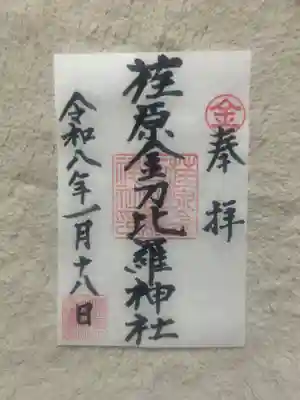 ㊎奉拝
荏原金刀比羅神社
令和八年一月十八日